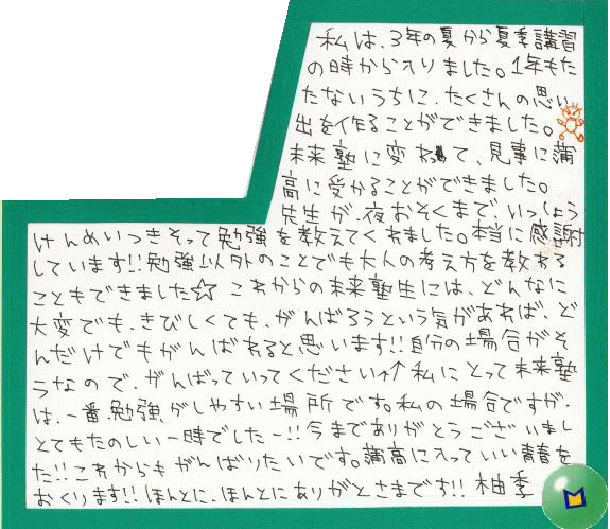 私は、3年の夏から夏季講習
の時から入りました。1年もた
たないうちに、たくさんの思い
出を作ることができました。
未来塾に変わって、見事に蒲
高に受かることができました。
先生が、夜おそくまで、いっしょう
けんめいつきそって勉強を教えてくれました。本当に感謝
しています!!勉強以外のことでも大人の考え方を教わる
こともできました☆ これからの未来塾生には、どんなに
大変でも、きびしくても、がんばろうという気があれば、ど
んだけでもがんばれると思います!!自分の場合がそ
うなので、がんばっていってください↑↑私にとって未来塾
は、一番、勉強がしやすい場所です。私の場合ですが、
とてもたのしい一時でしたー!!今までありがとうございまし
た!!これからもがんばりたいです。蒲高に入っていい青春を
おくります!!ほんとに、ほんとにありがとさまです!! 柚季